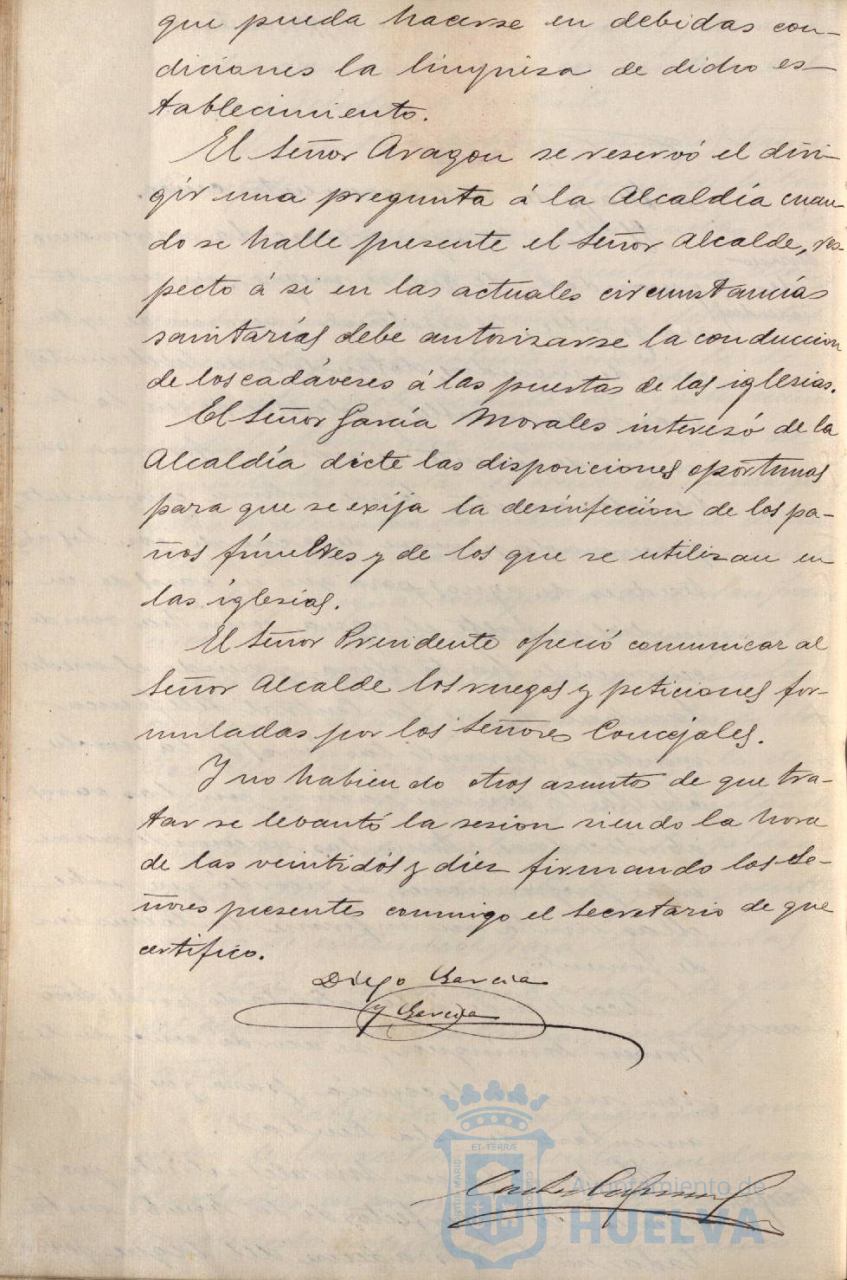 que pueda hacerse en debidas con-
diciones la limpiesa de dicho es-
tablecimiento.
El Señor Aragon se reservó el diri-
gir una pregunta á la Alcaldía cuan-
do se halle presente el Señor Alcalde, res-
pecto á si en las actuales circunstancias
sanitarias debe autorizarse la conduccion
de los cadáveres á las puertas de las iglesias.
El Señor García Morales interesó de la
Alcaldía dicte las disposiciones oportunas
para que se exija la desinfección de los pa-
ños fúnebres y de los que se utilizan en
las iglesias.
El Señor Presidente ofreció comunicar al
Señor Alcalde los ruegos y peticiones for-
muladas por los Señores Concejales.
Y no habiendo otros asuntos de que tra-
tar se levantó la sesion siendo la hora
de las veintidós y diez firmando los Se-
ñores presentes conmigo el Secretario de que
certifico.
Diego Garcia
y Garcia
Ayuntamiento de
HUELVA